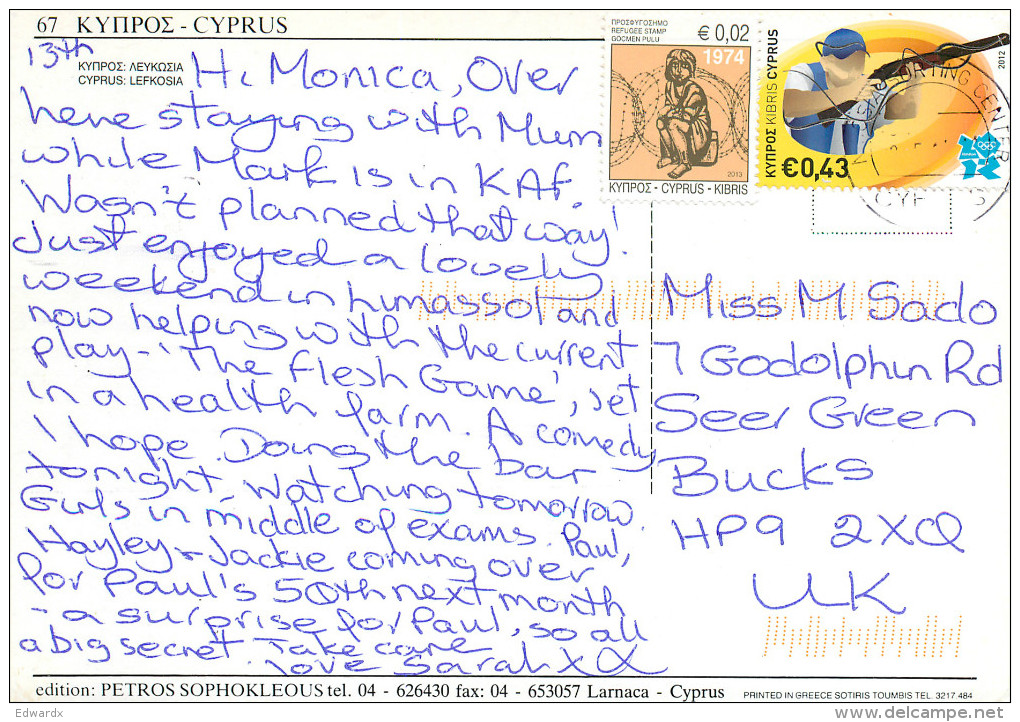 67 ΚΥΠΡΟΣ - CYPRUS
13th
ΚΥΠΡΟΣ: ΛΕΥΚΩΣΙΑ
CYPRUS: LEFKOSIA
Hi Monica, Over
here staying with Mum
while Mark is in KAF.
Wasn't planned that way!
Just enjoyed a lovely
weekend in humassol and
now helping with the current
play - 'The Flesh Game', set
in a health farm. A comedy
I hope. Doing the bar
tonight, watching tomorrow.
Girls in middle of exams. Paul,
Hayley + Jackie coming over
for Paul's 50th next month
- a surprise for Paul, so all
a big secret. Take care
love Sarah xx
ΠΡΟΣΦΥΓΟΣΗΜΟ
REFUGEE STAMP
GÖÇMEN PULU
€ 0,02
1974
2013
ΚΥΠΡΟΣ - CYPRUS - KIBRIS
ΚΥΠΡΟΣ KIBRIS CYPRUS
2012
€0,43
SORTING CENTRE
Miss M Sado
7 Godolphin Rd
Seer Green
Bucks
HP9 2XQ
UK
edition: PETROS SOPHOKLEOUS tel. 04 - 626430 fax: 04 - 653057 Larnaca - Cyprus
PRINTED IN GREECE SOTIRIS TOUMBIS TEL. 3217.484
Edwardx
delcampe.net